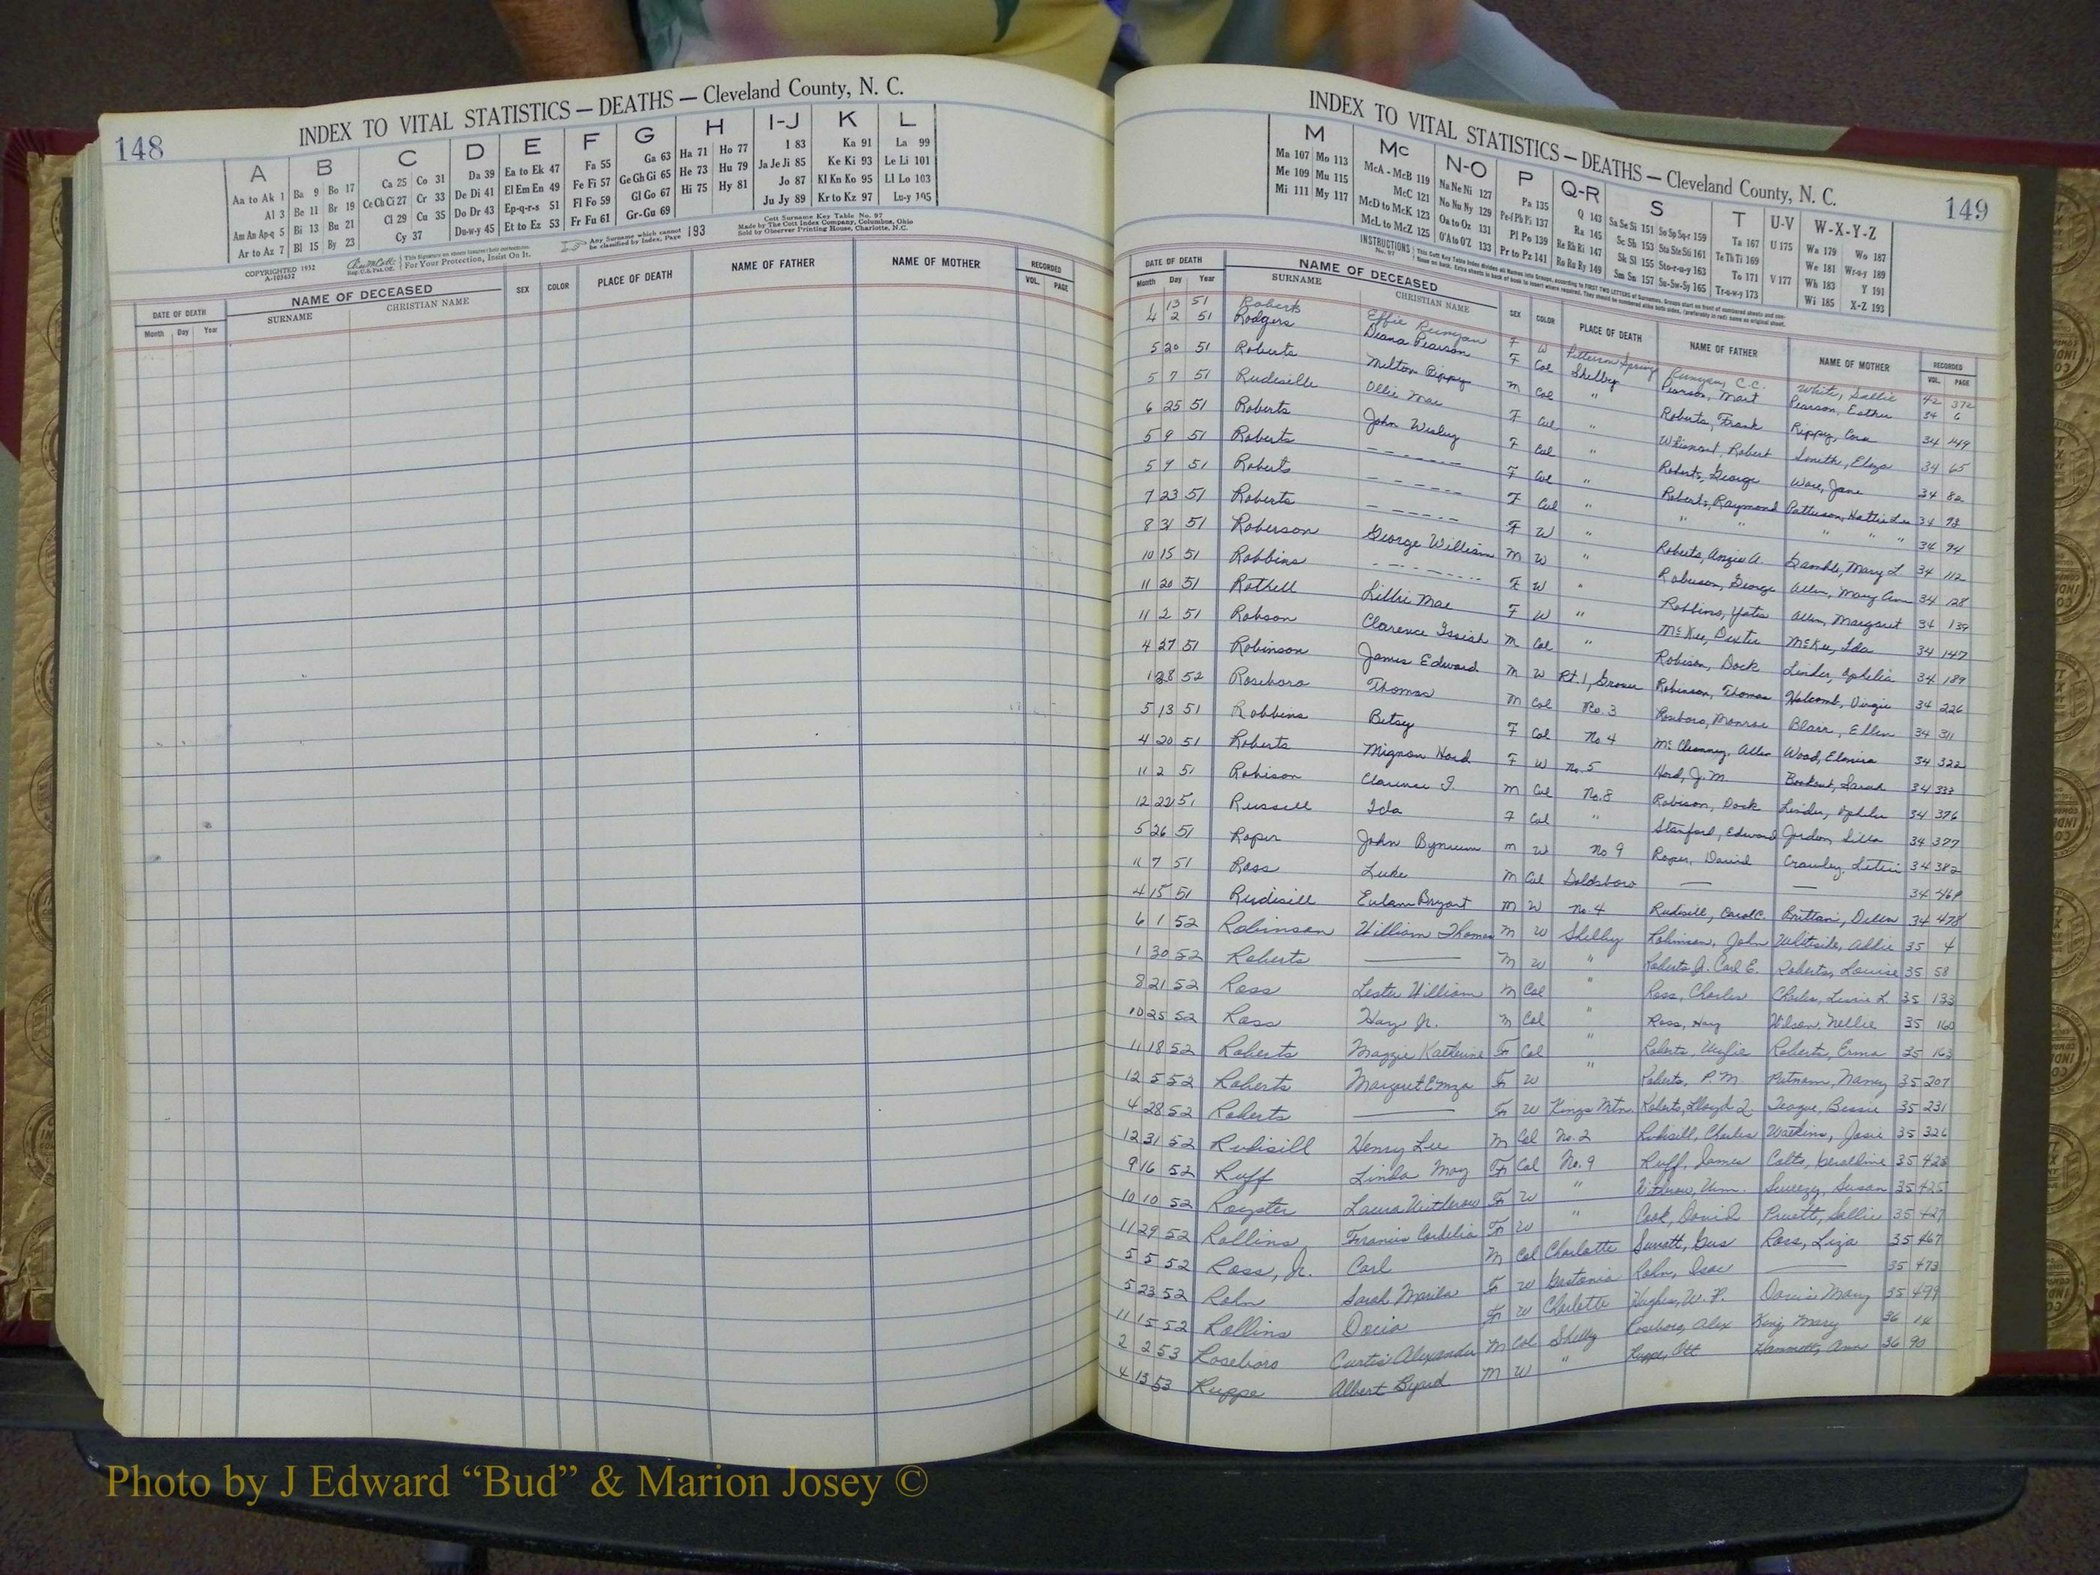 148
INDEX TO VITAL STATISTICS — DEATHS — Cleveland County, N. C.
A B C D E F G H I-J K L
Aa to Ak 1 Ba 9 Bo 17 Ca 25 Co 31 Da 39 Ea to Ek 47 Fa 55 Ga 63 Ha 71 Ho 77 I 83 Ka 91 La 99
Al 3 Be 11 Br 19 Ce Ch Ci 27 Cr 33 De Di 41 El Em En 49 Fe Fi 57 Ge Gh Gi 65 He 73 Hu 79 Ja Je Ji 85 Ke Ki 93 Le Li 101
Am An Ap-q 5 Bi 13 Bu 21 Cl 29 Cu 35 Do Dr 43 Ep-q-r-s 51 Fl Fo 59 Gl Go 67 Hi 75 Hy 81 Jo 87 Kl Kn Ko 95 Ll Lo 103
Ar to Az 7 Bl 15 By 23 Cy 37 Du-w-y 45 Et to Ez 53 Fr Fu 61 Gr-Gu 69 Ju Jy 89 Kr to Kz 97 Lu-y 105
COPYRIGHTED 1932
A-103632
For Your Protection, Insist On It.
Any Surname which cannot be classified by Index, Page 193
Cott Surname Key Table No. 97
Made by The Cott Index Company, Columbus, Ohio
Sold by Observer Printing House, Charlotte, N.C.
DATE OF DEATH NAME OF DECEASED SEX COLOR PLACE OF DEATH NAME OF FATHER NAME OF MOTHER RECORDED
Month Day Year SURNAME CHRISTIAN NAME VOL. PAGE
149
INDEX TO VITAL STATISTICS — DEATHS — Cleveland County, N. C.
M Mc N-O P Q-R S T U-V W-X-Y-Z
Ma 107 Mo 113 McA - McB 119 Na Ne Ni 127 Pa 135 Q 143 Sa Se Si 151 So Sp Sq-r 159 Ta 167 U 175 Wa 179 Wo 187
Me 109 Mu 115 McC 121 No Nu Ny 129 Pe-f Ph Pi 137 Ra 145 Sc Sh 153 Sta Ste Sti 161 Te Th Ti 169 We 181 Wr-u-y 189
Mi 111 My 117 McD to McK 123 Oa to Oz 131 Pl Po 139 Re Rh Ri 147 Sk Sl 155 Sto-r-u-y 163 To 171 V 177 Wh 183 Y 191
McL to McZ 125 O'A to O'Z 133 Pr to Pz 141 Ro Ru Ry 149 Sm Sn 157 Su-Sw-Sy 165 Tr-u-w-y 173 Wi 185 X-Z 193
DATE OF DEATH NAME OF DECEASED SEX COLOR PLACE OF DEATH NAME OF FATHER NAME OF MOTHER RECORDED
Month Day Year SURNAME CHRISTIAN NAME VOL. PAGE
1 13 51 Roberts Effie Runyan F W Patterson Spring Runyan, C.C. White, Sallie 42 372
4 2 51 Rodgers Deana Pearson F Col Shelby Pearson, Mart Pearson, Esther 34 6
5 20 51 Roberts Milton Rippy M Col " Roberts, Frank Rippy, Cora 34 149
5 7 51 Rudiselle Ollie Mae F Col " Whisnant, Robert Smith, Eliza 34 65
6 25 51 Roberts John Wesley F Col " Roberts, George Ware, Jane 34 82
5 9 51 Roberts ------ F Col " Roberts, Raymond Patterson, Hattie Lee 34 93
5 9 51 Roberts ------ F Col " " " " " " 34 94
7 23 51 Roberts ------ F W " Roberts, A. Gamble, Mary L 34 112
8 31 51 Roberson George William M W " Roberson, George Allen, Mary Ann 34 128
10 15 51 Robbins ------ F W " Robbins, Yates Allen, Margaret 34 139
11 20 51 Rothell Lillie Mae F W " McKee, Dexter McKee, Ida 34 147
11 2 51 Robson Clarence Issiah M Col " Robison, Dock Linder, Ophelia 34 189
4 27 51 Robinson James Edward M W Rt. 1, Grover Robinson, Thomas Holcomb, Virgie 34 226
1 28 52 Roseboro Thomas M Col No. 3 Roseboro, Monroe Blair, Ellen 34 311
5 13 51 Robbins Betsy F Col No 4 Allen Wood, Elmira 34 322
4 20 51 Roberts Mignon Hord F W No. 5 Hord, J. M. Bookout, Sarah 34 333
11 2 51 Robison Clarence I. M Col No. 8 Robison, Dock Linder, Ophelia 34 376
12 22 51 Russell Ida F Col " Stanford, Edward Jordon, Silla 34 377
5 26 51 Roper John Bynum M W No 9 Roper, David Crawley, 34 382
11 7 51 Ross Luke M Col Goldsboro — — 34 469
4 15 51 Rudisill Eulam Bryant M W No. 4 Rudisill, Brittain, Della 34 478
6 1 52 Robinson William Thomas M W Shelby Robinson, John Whiteside, Addie 35 4
1 30 52 Roberts — M W " Roberts Jr. Carl E. Roberts, Louise 35 58
8 21 52 Ross Lester William M Col " Ross, Charles L 35 133
10 25 52 Ross Hay Jr. M Col " Ross, Hay Wilson, Nellie 35 160
11 18 52 Roberts Maggie Katherine F Col " Roberts, Wylie Roberts, Erma 35 163
12 5 52 Roberts Margaret Emza F W " Roberts, P. M. Putnam, Nancy 35 207
4 28 52 Roberts — F W Kings Mtn. Roberts, Lloyd Z Teague, Bessie 35 231
12 31 52 Rudisill Henry Lee M Col No. 2 Rudisill, Charles Watkins, Josie 35 326
9 16 52 Ruff Linda May F Col No. 9 Ruff, James Colts, Geraldine 35 423
10 10 52 Royster Laura Witherow F W " Witherow, Wm. Sweezy, Susan 35 425
11 29 52 Rollins Francis Cordelia F W " Cook, David Pruett, Sallie 35 427
5 5 52 Ross, Jr. Carl M Col Charlotte Gus Ross, Liza 35 467
5 23 52 Rohn Sarah F W Gastonia Rohn, Isac — 35 473
11 15 52 Rollins Docia F W Charlotte Hughes, W. P. Davis Mary 35 499
2 2 53 Roseboro Curtis Alexander M Col Shelby Roseboro, Alex King Mary 36 14
4 13 53 Ruppe Albert Byrd M W " Ruppe, Ott Hammett, Ann 36 90
Photo by J Edward “Bud” & Marion Josey ©